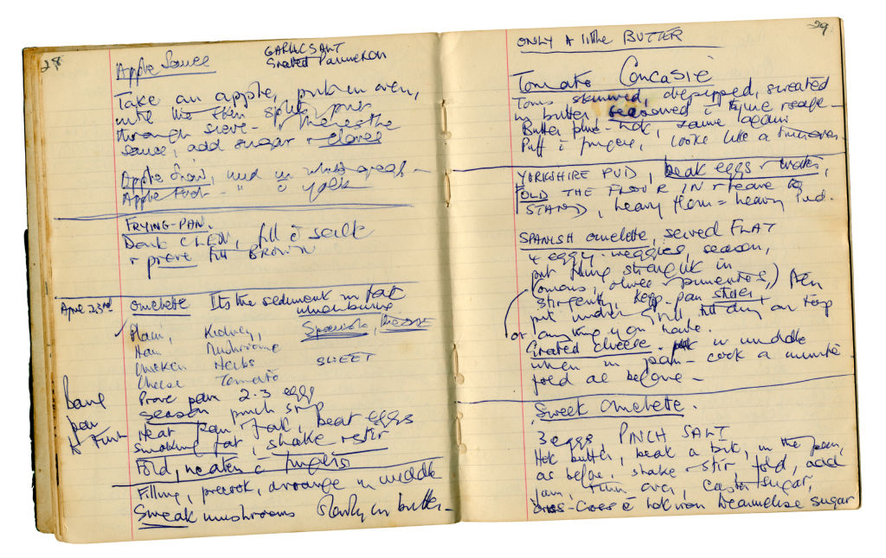 28
Apple Sauce
GARLIC SALT
Grated Parmeson
Take an apple, put in oven,
until the skin splits, put
through sieve - 
sauce, add sugar + cloves
Apple Snow, 
Apple Fool - " " yolk
FRYING-PAN.
Dont CLEAN, fill c̄ salt
+ prove till BROWN
April 23rd
Omelette Its the sediment in fat
Plain, Kidney, Spanish,
Ham Mushrooms
Chicken Herbs SWEET
Cheese Tomato
Bang
pan
to Finish
Prove pan 2-3 eggs
season pinch S + P
Heat pan, fat, beat eggs
smoking fat, shake + stir
Fold, neaten c̄ fingers
Filling, precook, arrange in middle
Sweat mushrooms slowly in butter -
29
ONLY A little BUTTER
Tomato Concasse
Toms skinned, depipped, sweated
in butter seasoned
Butter pan - hot, same again
Puff c̄ fingers, looks like a turnover
YORKSHIRE PUD, beat eggs + water,
FOLD THE FLOUR IN + leave to
STAND, heavy flour = heavy Pud.
SPANISH omelette, served FLAT
4 eggs - veggies, season,
put thing straight in
tomatoes, olives + pimentoes, then
stir gently, keep pan still
put under grill till dry on top
or anything you have.
Grated cheese - put in middle
when in pan - cook a minute
fold as before -
Sweet Omelette.
3 eggs, PINCH SALT
Hot butter, beat a bit, in the pan
as before, shake + stir fold, add
jam, turn over, castor sugar,
criss-cross c̄ hot iron caramelise sugar